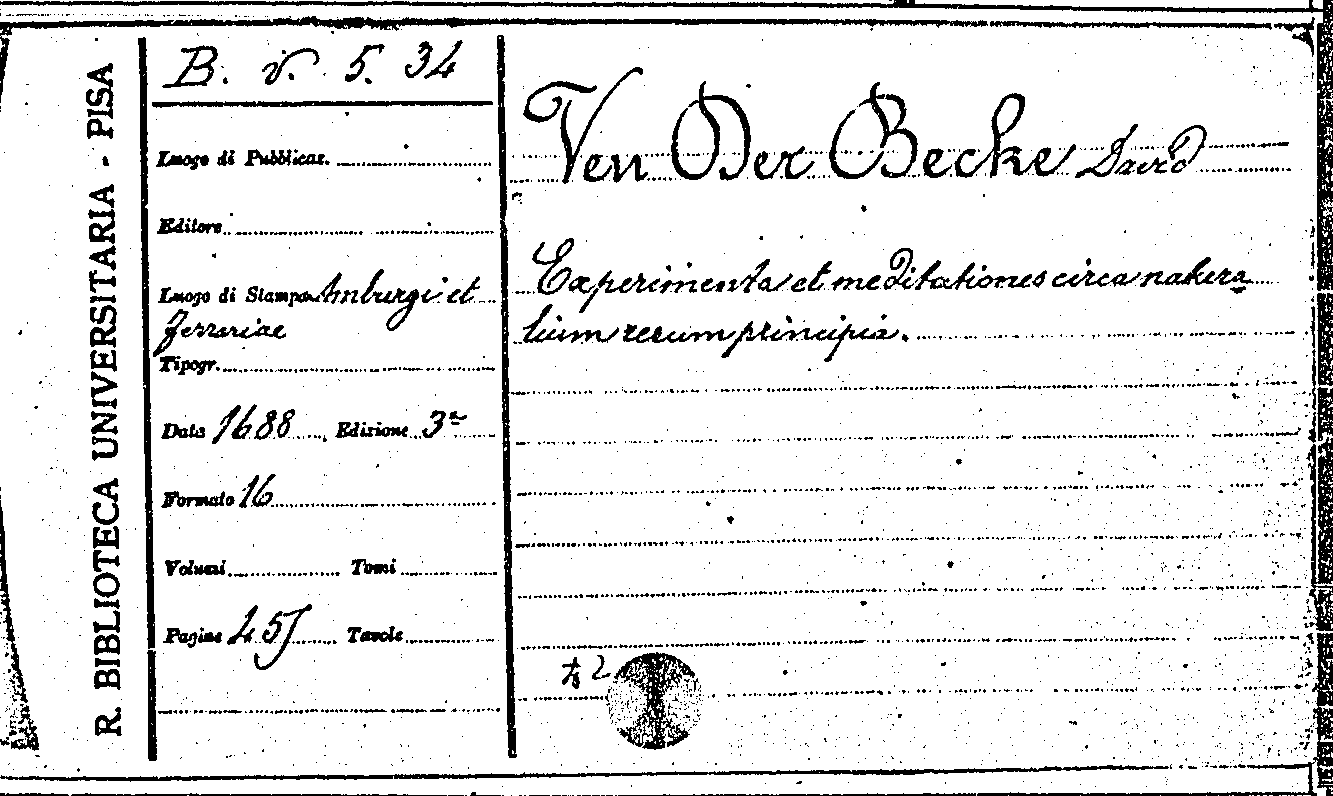 R. BIBLIOTECA UNIVERSITARIA - PISA
B. v. 5. 34
Luogo di Pubblicaz.
Editore
Luogo di Stampa Amburgi et
Ferrariae
Tipogr.
Data 1688, Edizione 3ª
Formato 16
Volumi Tomi
Pagine 45 Tavole
Ven Der Becke David
Experimenta et meditationes circa natura
lium rerum principia.